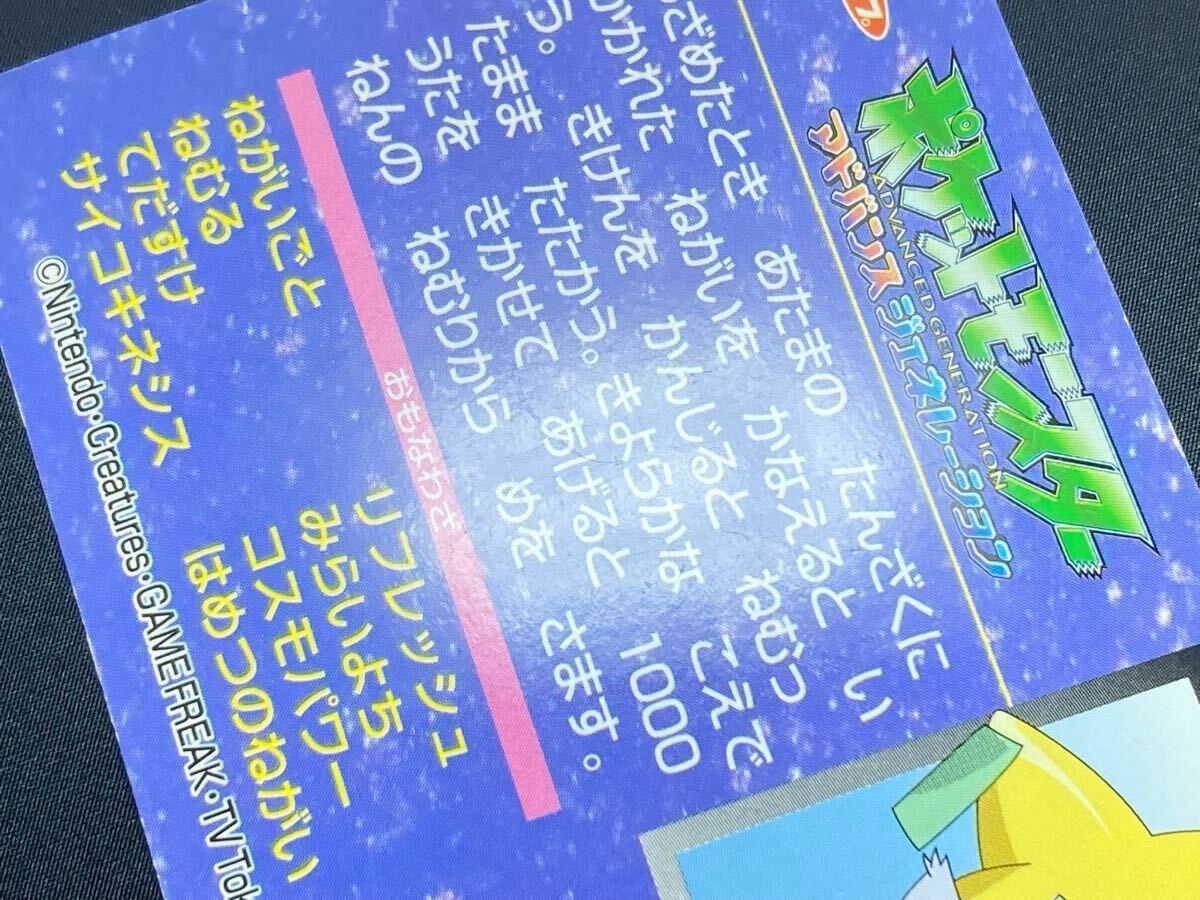 プ。
ポケットモンスター
ADVANCED GENERATION
アドバンスジェネレーション
ざめたとき あたまの たんざくに
かかれた ねがいを かなえると い
う。 きけんを かんじると ねむっ
たまま たたかう。きよらかな こえで
うたを きかせて あげると 1000
ねんの ねむりから めを さます。
おもなわざ
ねがいごと リフレッシュ
ねむる みらいよち
てだすけ コスモパワー
サイコキネシス はめつのねがい
©Nintendo・Creatures・GAME FREAK・TV Tok